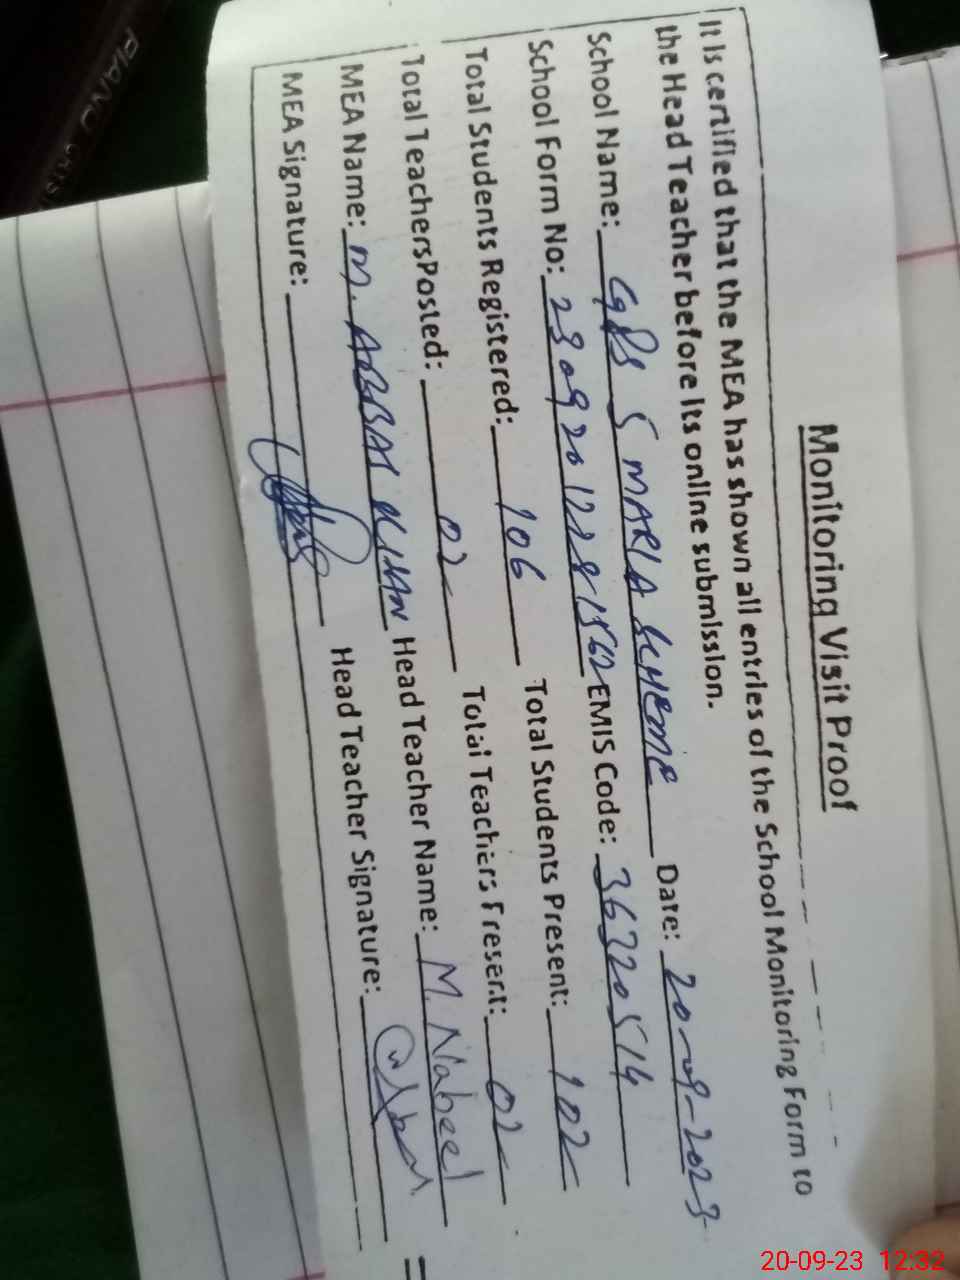 Monitoring Visit Proof
It is certified that the MEA has shown all entries of the School Monitoring Form to
the Head Teacher before its online submission.
School Name: GPS 5 MARLA SCHEME Date: 20-09-2023
School Form No: 23092012281562 EMIS Code: 36220514
Total Students Registered: 106 Total Students Present: 102
Total Teachers Posted: 02 Total Teachers Present: 02
MEA Name: M. ABBAS KHAN Head Teacher Name: M. Nabeel
MEA Signature: Head Teacher Signature:
PIANO
20-09-23 12:32